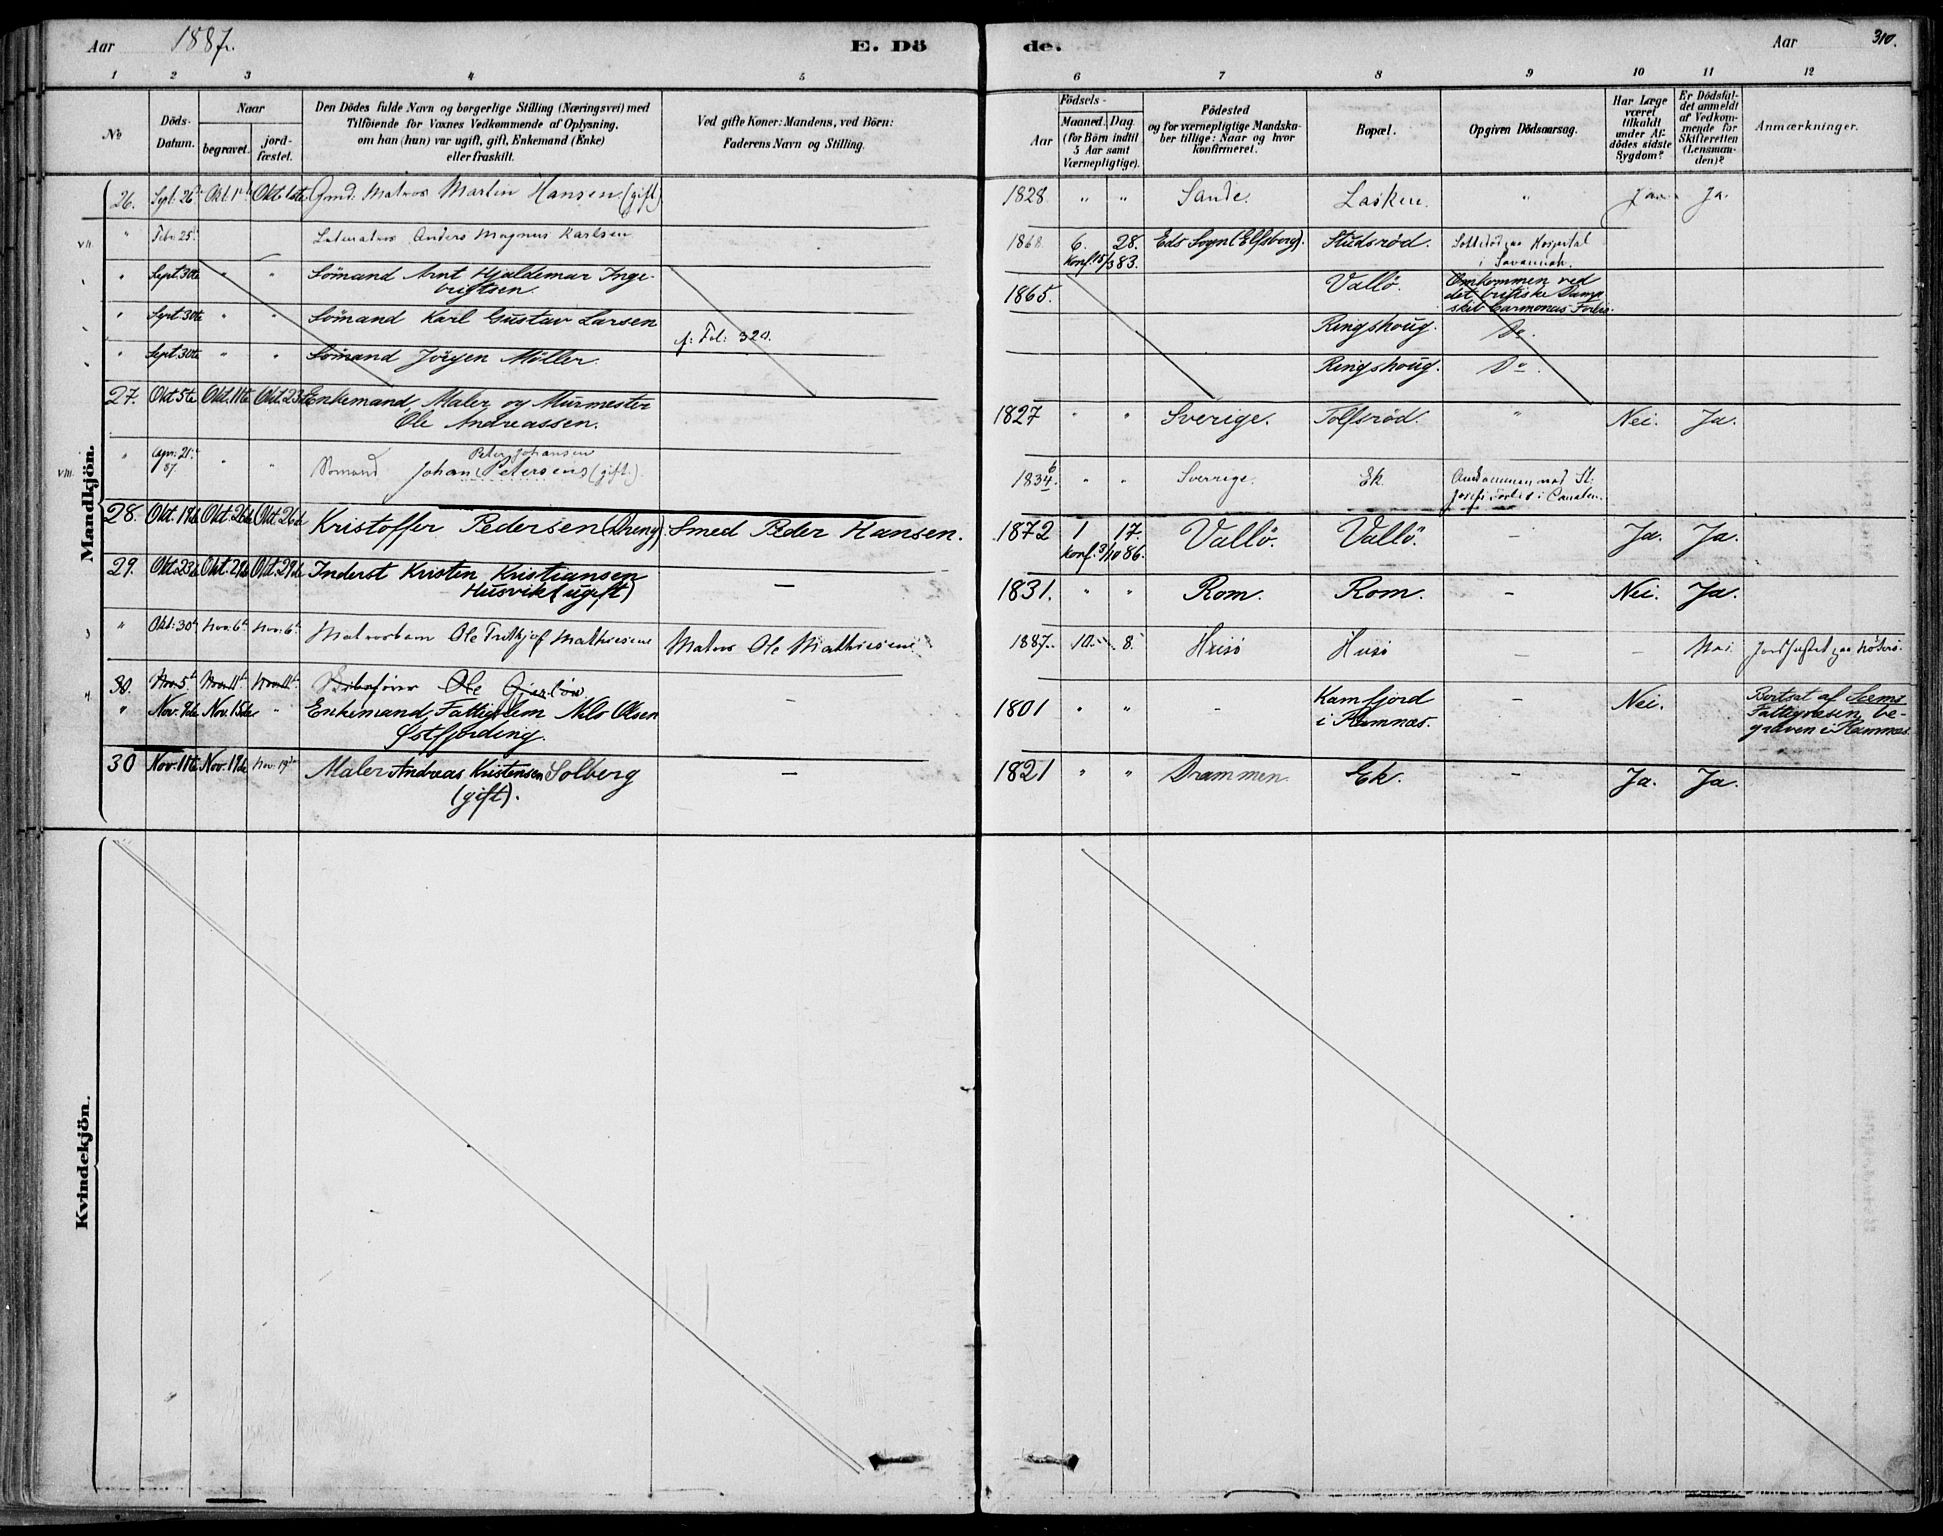 Aar 1887. E. Dö
de. Aar 310.
1 2 3 4 5
6 7 8 9 10 11 12
No
Döds-Datum.
Naar
begravet.
jord-fæstet.
Den Dödes fulde Navn og borgerlige Stilling (Næringsvei) med
Tilföiende for Voxnes Vedkommende af Oplysning.
om han (hun) var ugift, gift, Enkemand (Enke)
eller fraskilt.
Ved gifte Koner: Mandens, ved Börn:
Faderens Navn og Stilling.
Aar
Födsels-
Maaned. Dag
(for Börn indtil
5 Aar samt
Værnepligtige).
Födested
og for værnepligtige Mandska-
ber tillige: Naar og hvor
konfirmeret.
Bopæl.
Opgiven Dödsaarsag.
Har Læge
været
tilkaldt
under Af-
dödes sidste
Sygdom?
Er Dödsfal-
det anmeldt
af Vedkom-
mende for
Skifteretten
(Lensman-
den)?
Anmærkninger.
Mandkjön.
26. Sept. 26 Okt. 1 Okt. 1ste Gmd. Matros Martin Hansen (gift) 1828 " " Sande. Lasken. " Ja. Ja.
VII. " Feb. 25. Letmatros Anders Magnus Karlsen 1868 6. 28. Eds Sogn (Elfsborg). Studsröd. Hospital
konf. 15/3 83. i Savannah.
" Sept. 30te " " Sömand Arnt Hjaldemar Inge-
brigtsen. 1865. Vallö. Omkommen ved
det britiske Damp
skib Carmonas Forlis.
" Sept. 30te " " Sömand Karl Gustav Larsen Ringshoug. Do
cf. Fol: 320.
" Sept. 30te " " Sömand Jörgen Möller. Ringshoug. Do.
27. Okt. 5te Okt. 11te Okt. 23 Enkemand, Maler og Murmester
Ole Andreassen. 1827 " " Sverige. Tolfsröd. " Nei. Ja.
VIII. " Apr. 21. 87 " " Peter Johansen
Sömand Johan Petersens (gift). 1834 6 " " Sverrige. Ek
Forlis i Canalen.
28. Okt. 19de Okt. 26de Okt. 26de Kristoffer Pedersen (Dreng) Smed Peder Hansen. 1872 1 17. Vallö. Vallö. – Ja. Ja.
konf. 3/10 86.
29. Okt. 23de Okt. 29de Okt. 29de Inderst Kristen Kristiansen
Husvik (ugift) – 1831. " " Rom. Rom. – Nei. Ja.
3 " Okt. 30 Nov. 6 Nov. 6 Matrosbarn Ole Mathiesens Matros Ole Mathiesens 1887. 10. 8. Husö Husö – – Nei. Jordfæstet paa Nöterö.
4 30. Nov. 5 Nov. 11 Nov. 11 Ole Gjerlöv. –
" Nov. 9de Nov. 15de " Enkemand, Fattiglem Nils Olsen
Østfjording. 1801 " " – Kamfjord
i Ramnæs. – Nei. Bortsat af Sems
Fattigvæsen, be-
graven i Ramnæs.
30 Nov. 11te Nov. 19de Nov. 19de Maler Andreas Kristensen Solberg
(gift). – 1821 " " Drammen. Ek. – Ja. Ja.
Kvindekjön.